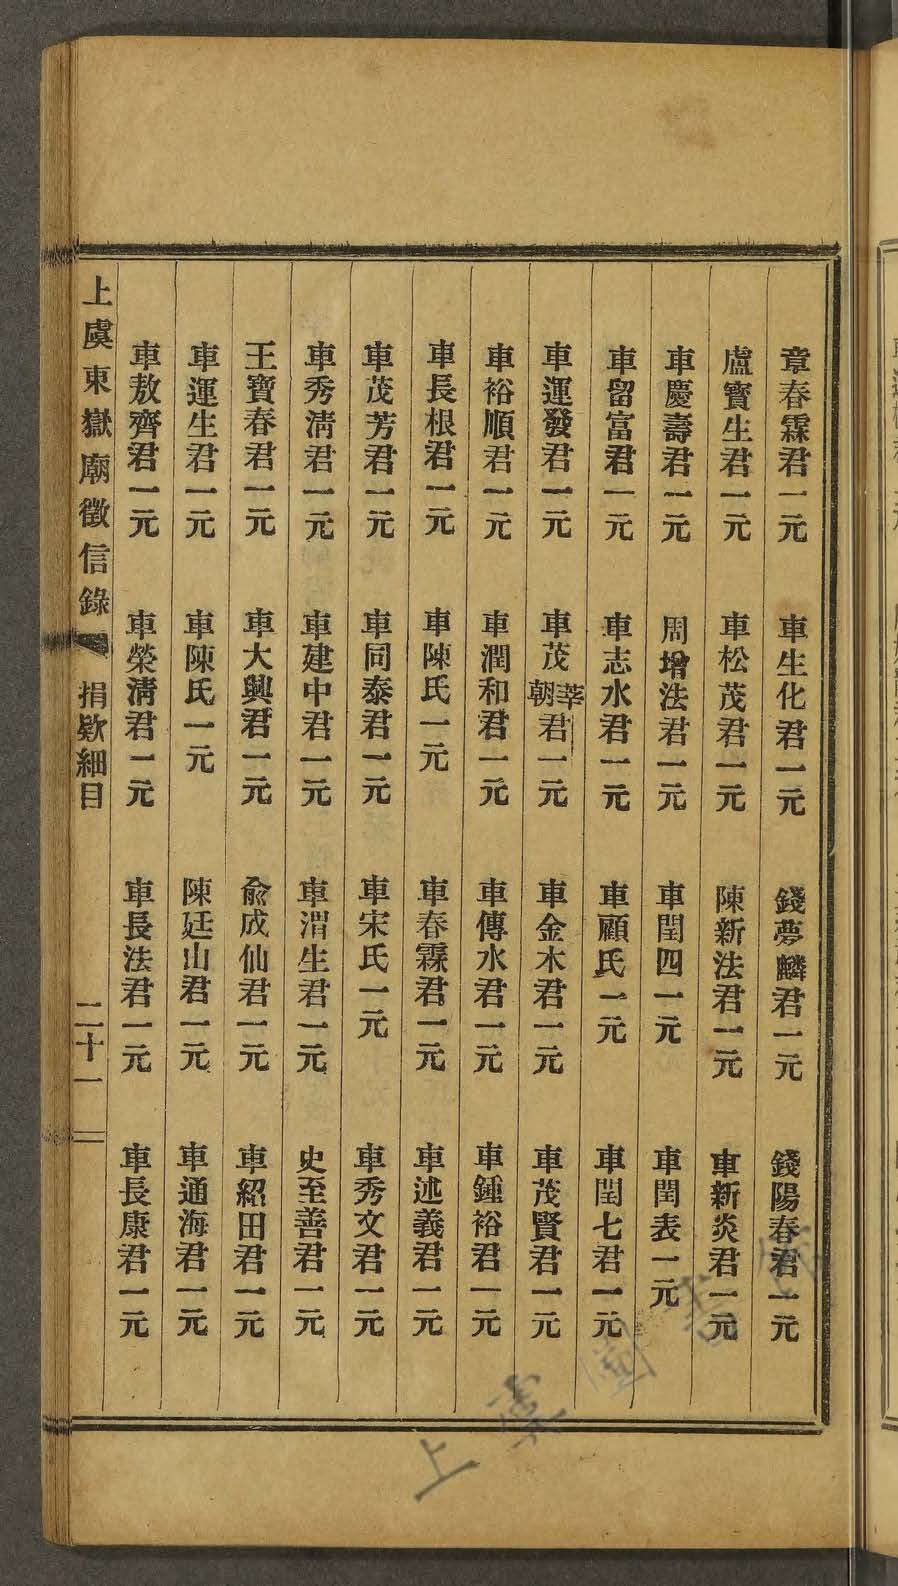 章春霖君一元 車生化君一元 錢夢麟君一元 錢陽春君一元
盧寳生君一元 車松茂君一元 陳新法君一元 車新炎君一元
車慶壽君一元 周增法君一元 車閏四一元 車閏表一元
車留富君一元 車志水君一元 車顧氏一元 車閏七君一元
車運發君一元 車茂莘朝君一元 車金木君一元 車茂賢君一元
車裕順君一元 車潤和君一元 車傳水君一元 車鍾裕君一元
車長根君一元 車陳氏一元 車春霖君一元 車述義君一元
車茂芳君一元 車同泰君一元 車宋氏一元 車秀文君一元
車秀淸君一元 車建中君一元 車渭生君一元 史至善君一元
王寳春君一元 車大興君一元 俞成仙君一元 車紹田君一元
車運生君一元 車陳氏一元 陳廷山君一元 車通海君一元
車敖齊君一元 車榮淸君一元 車長法君一元 車長康君一元
上虞東嶽廟徵信錄 捐欵細目 二十一
上虞圖書館